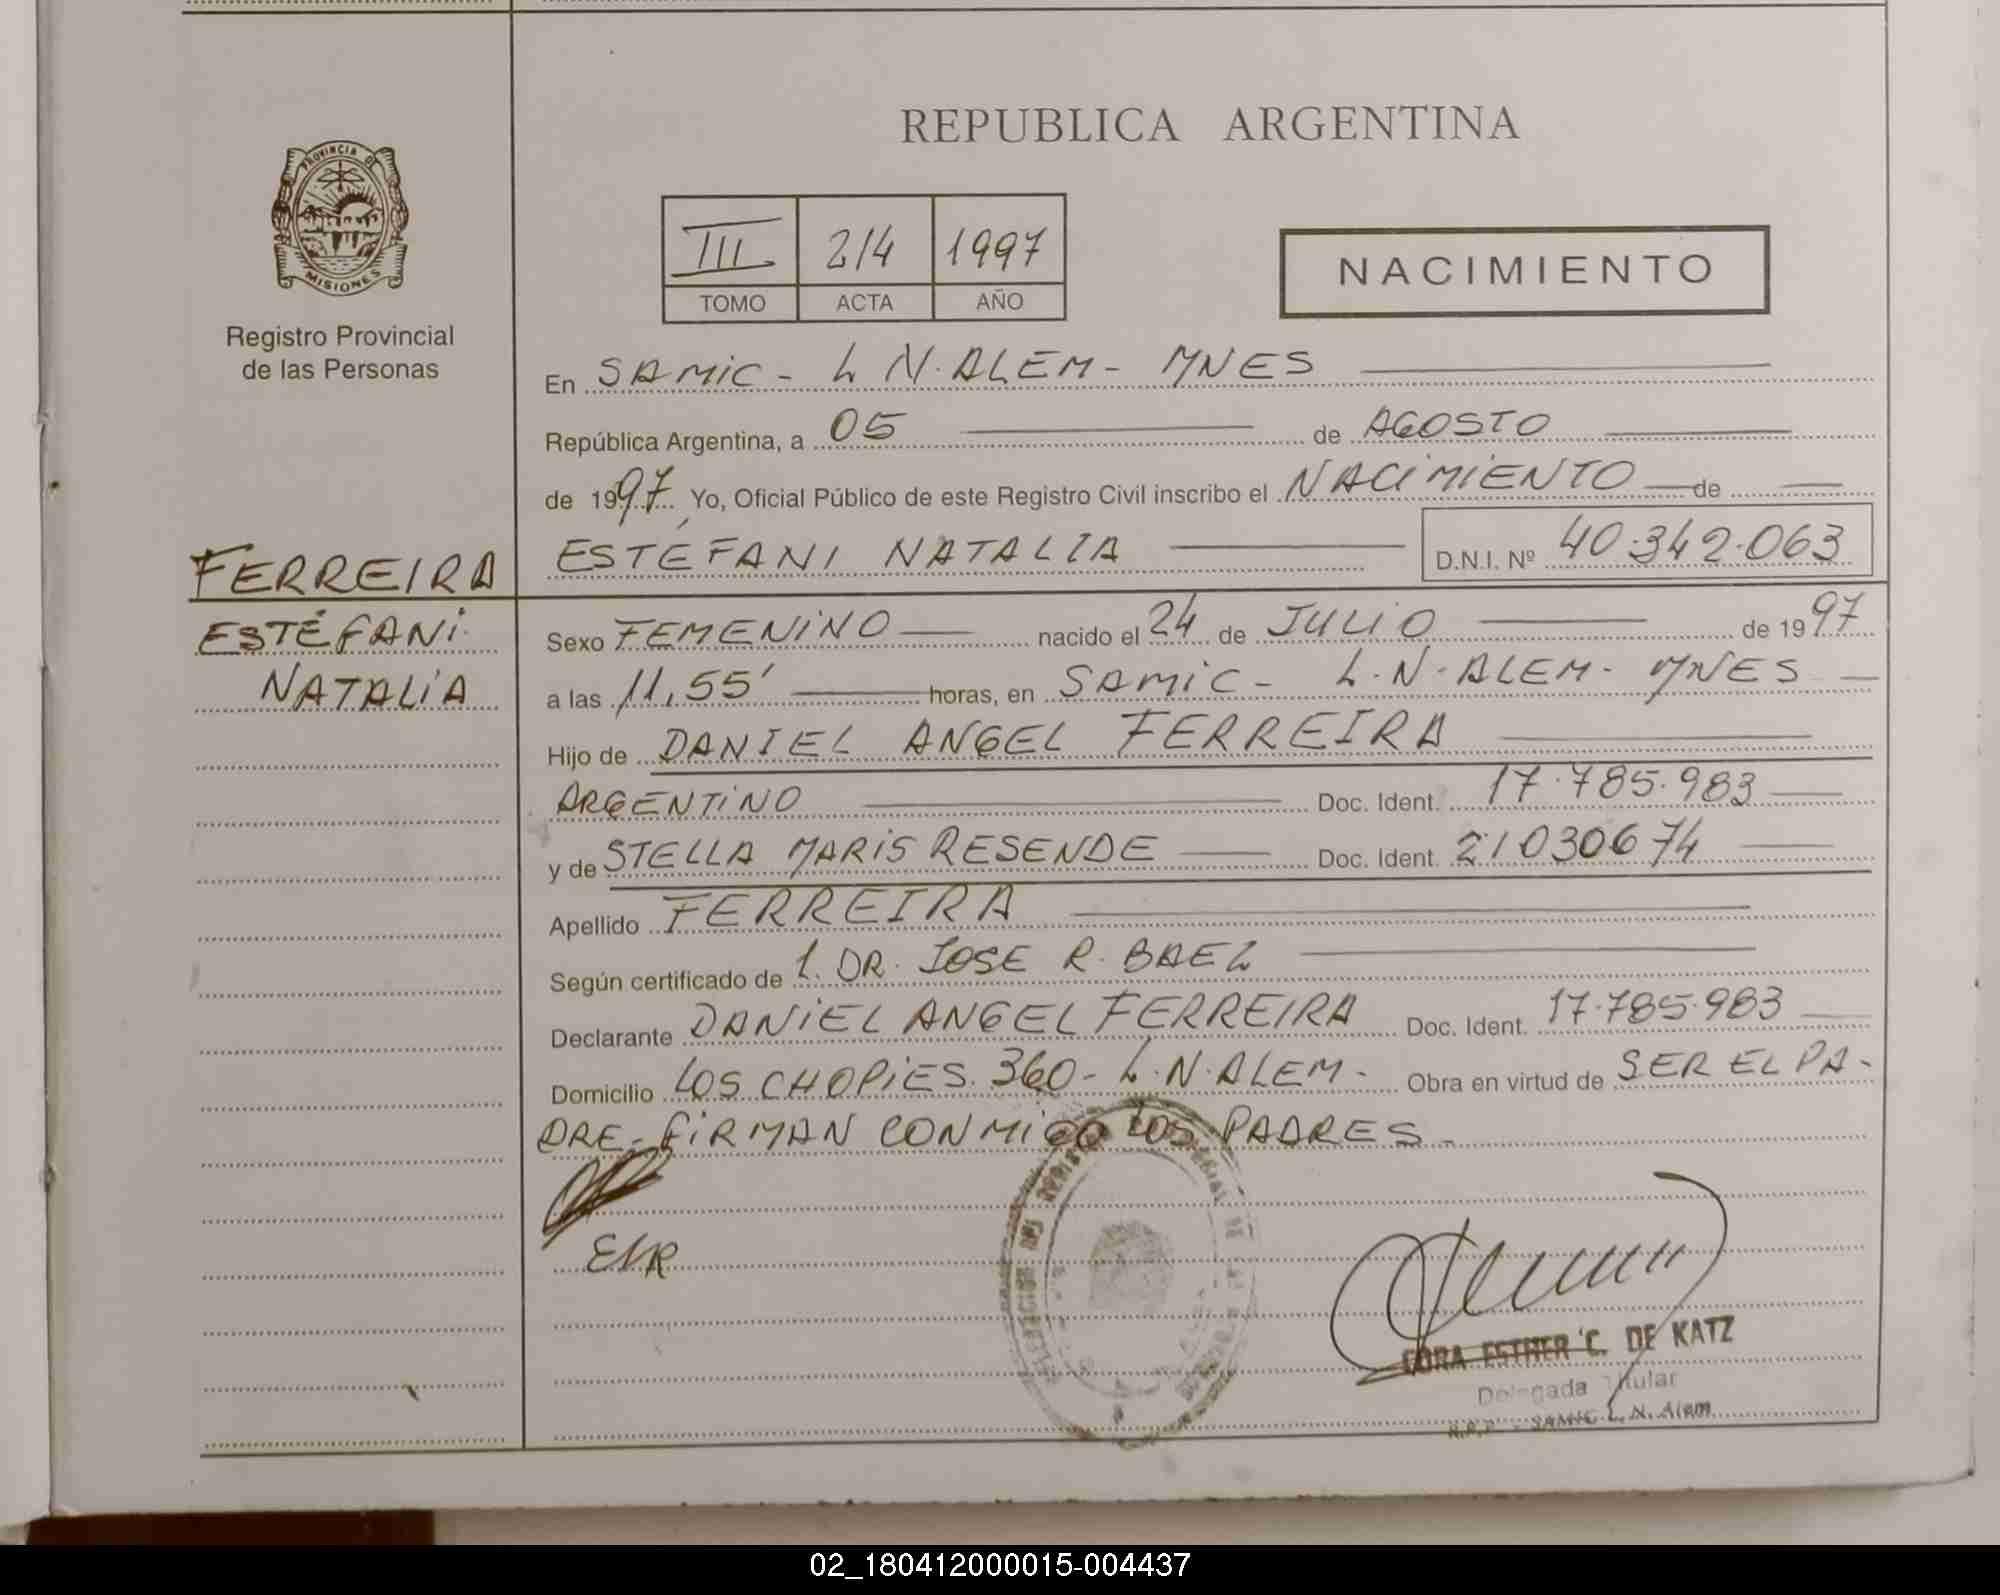 REPUBLICA ARGENTINA
PROVINCIA DE
MISIONES
Registro Provincial
de las Personas
III 214 1997
TOMO ACTA AÑO
NACIMIENTO
En SAMIC - L N. ALEM - MNES
República Argentina, a 05 de AGOSTO
de 1997. Yo, Oficial Público de este Registro Civil inscribo el NACIMIENTO de
ESTÉFANI NATALIA D.N.I. Nº 40.342.063
FERREIRA
ESTÉFANI
NATALIA
Sexo FEMENINO nacido el 24 de JULIO de 1997
a las 11,55' horas, en SAMIC - L.N. ALEM - MNES
Hijo de DANIEL ANGEL FERREIRA
ARGENTINO Doc. Ident. 17.785.983
y de STELLA MARIS RESENDE Doc. Ident. 21030674
Apellido FERREIRA
Según certificado de 1. DR. JOSE R. BAEZ
Declarante DANIEL ANGEL FERREIRA Doc. Ident. 17.785.983
Domicilio LOS CHOPIES 360 - L.N. ALEM - Obra en virtud de SER EL PA-
DRE - FIRMAN CONMIGO LOS PADRES -
ESTHER C. DE KATZ
Delegada Titular
SAMIC L. N. Alem
02_180412000015-004437